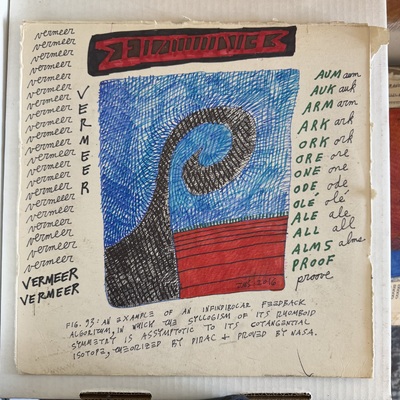 vermeer
vermeer
vermeer
vermeer
vermeer
vermeer
vermeer
vermeer
vermeer
vermeer
vermeer
vermeer
vermeer
vermeer
vermeer
vermeer
vermeer
vermeer
VERMEER
VERMEER
VERMEER
AUM aum
AUK auk
ARM arm
ARK ark
ORK ork
ORE ore
ONE one
ODE ode
OLE olé
ALE ale
ALL all
ALMS alms
PROOF
proove
2016
FIG. 93: AN EXAMPLE OF AN INFINDIBOCAR FEEDBACK
ALGORITHM, IN WHICH THE SYLLOGISM OF ITS RHOMBOID
SYMMETRY IS ASSYMPTOTIC TO ITS COTANGENTIAL
ISOTOPE, THEORIZED BY DIRAC + PROVED BY NASA.